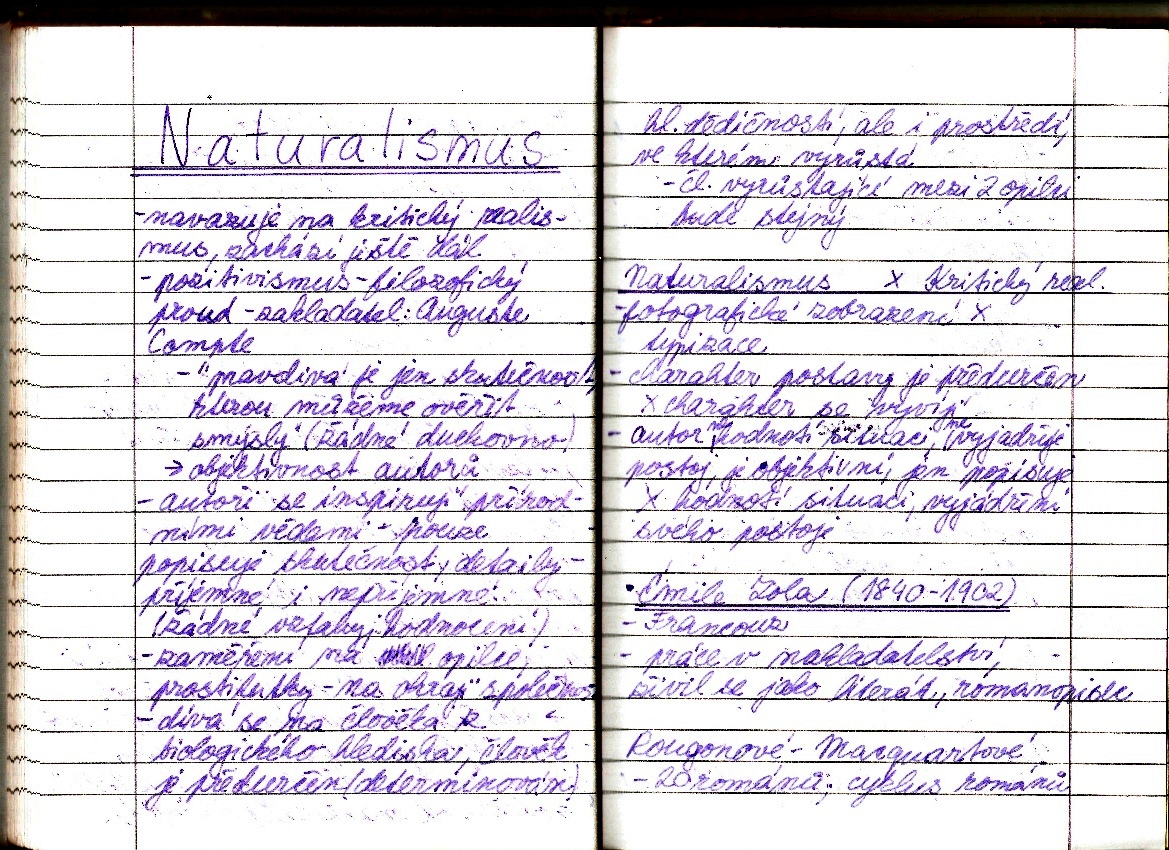 Naturalismus
-navazuje na kritický realis-
mus, zachází ještě dál
-pozitivismus-filozofický
proud -zakladatel: Auguste
Compte
-"pravdivá je jen skutečnost,
kterou můžeme ověřit
smysly" (žádné duchovno)
→ objektivnost autorů
- autoři se inspirují přírod-
ními vědami - pouze
popisuje skutečnost, detaily-
příjemné i nepříjemné
(žádné vztahy, hodnocení)
-zaměření na opilce,
prostitutky - na okraji společnos
-dívá se na člověka z
biologického hlediska, člověk
je předurčen (determinován)
hl. dědičností, ale i prostředí,
ve kterém vyrůstá
-čl. vyrůstající mezi 2 opilci
bude stejný
Naturalismus x Kritický real.
-fotografické zobrazení x
typizace
- charakter postavy je předurčen
x charakter se vyvíjí
- autor nehodnotí situaci, nevyjadřuje
postoj, je objektivní, jen popisuje
x hodnotí situaci, vyjádření
svého postoje
• Émile Zola (1840-1902)
- Francouz
- práce v nakladatelství,
živil se jako literát, romanopisec
Rougonové - Macquartové
- 20 románů; cyklus románů